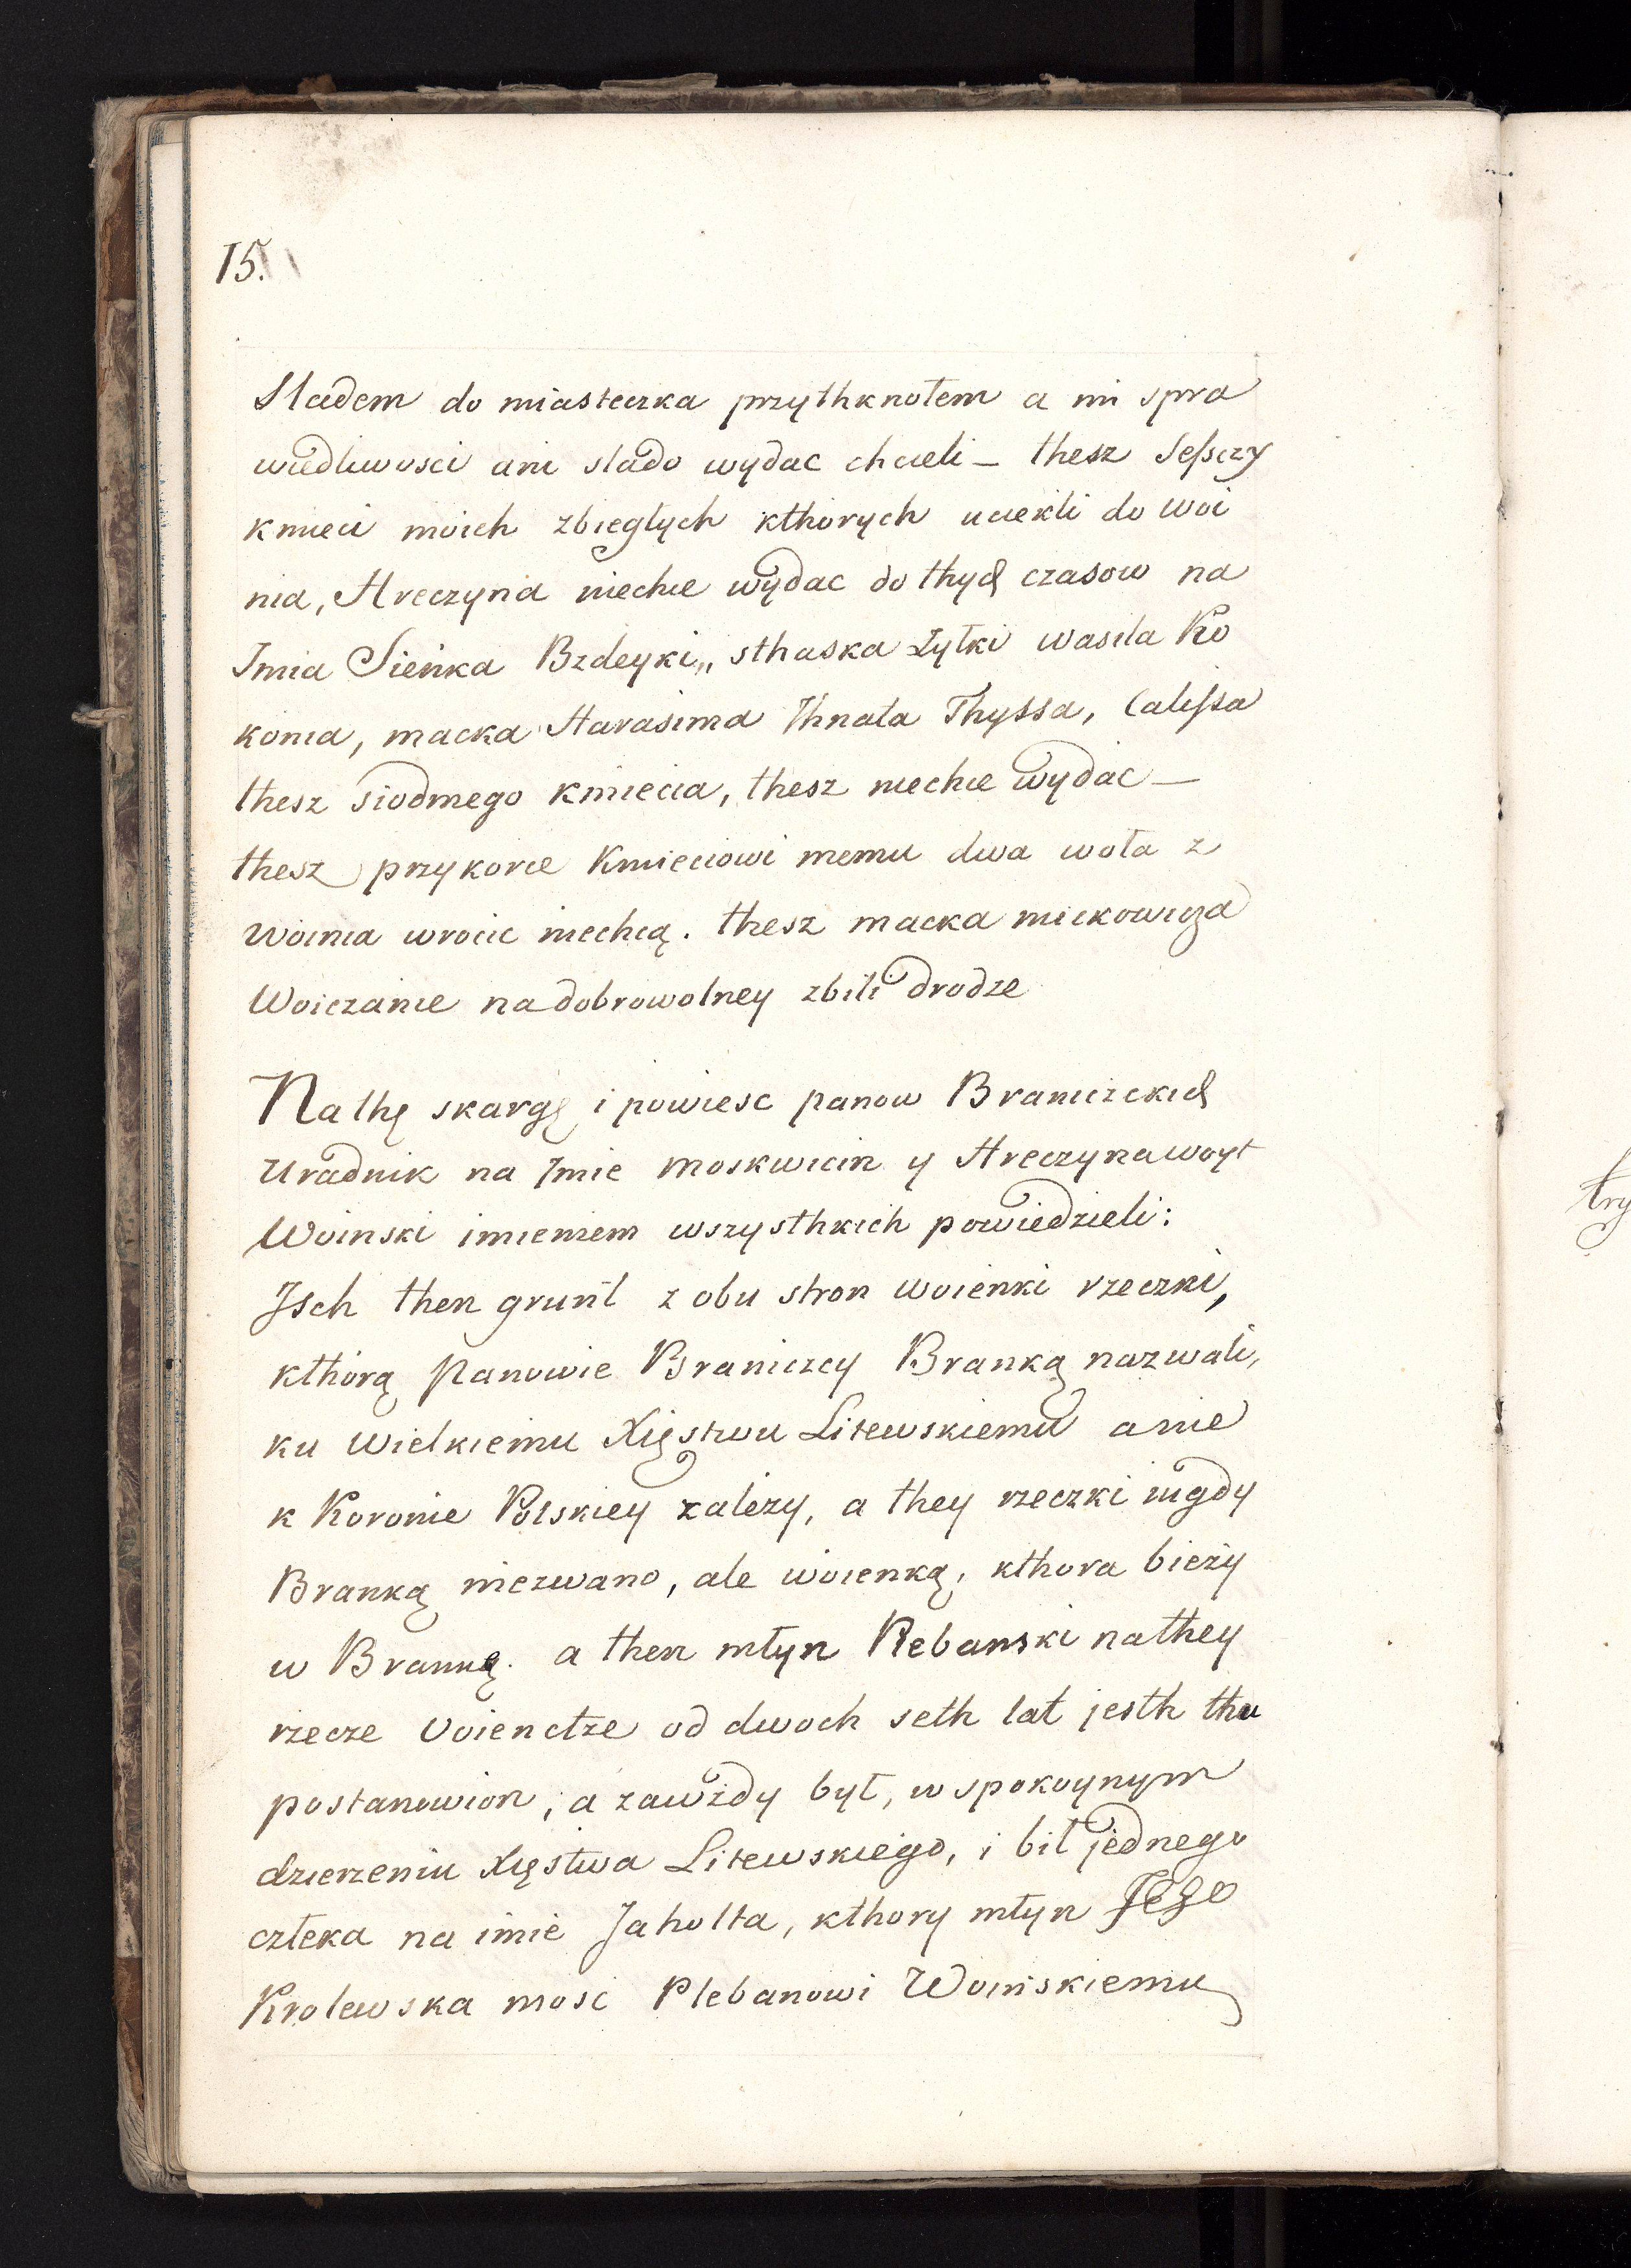 15.
Sladem do miasteczka przythknołem a mi spra
wiedliwosci ani slado wydac chcieli – thesz Sessczy
kmieci moich zbiegłych kthorych uciekli do Woi
nia, Hreczyna niechce wydac do thych czasow na
Imia Sieńka Bzdeyki,, sthaska Żyłki wasila Ko
konia, macka Harasima Ihnata Thyssa, Calissa
thesz siodmego kmiecia, thesz niechce wydac –
thesz przykorce Kmieciowi memu dwa woła z
Woinia wrocic niechcą. thesz macka mickowicza
Woiczanie na dobrowolney zbili drodze
Nathę skargę i powiesc panow Braniczckich
Uradnik na Imie Moskwicin y Hreczyna woyt
Woinski imieniem wszysthkich powiedzieli:
Isch then grunt z obu stron Woienki rzeczki,
kthorą Panowie Braniczcy Branką nazwali,
ku Wielkiemu Xięstwu Litewskiemu a nie
k Koronie Polskiey zależy, a they rzeczki nigdy
Branką niezwano, ale woienką, kthora bieży
w Brannę. a then młyn Plebanski nathey
rzecze Voienctze od dwoch seth lat jesth thu
postanowion, a zawżdy był, w spokoynym
dzierzeniu Xięstwa Litewskiego, i bił jednego
człeka na imie Jahołta, kthory młyn Jego
Krolewska mosc Plebanowi Woinskiemu
try